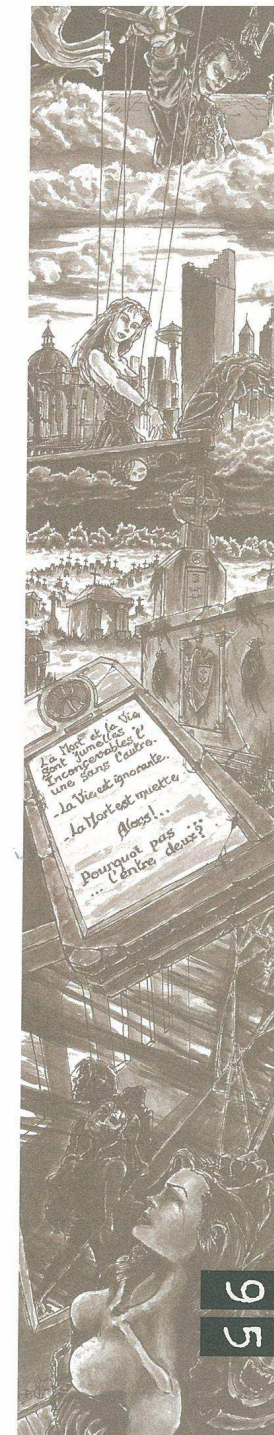 La Mort et la Vie
sont jumelles,
Inconcevables l'
une sans l'autre.
La Vie est ignorante.
La Mort est muette.
Alors!...
Pourquoi pas ...
... l'entre deux?
95